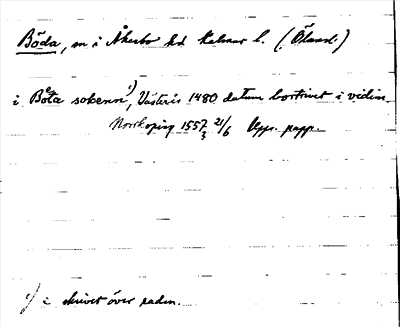 Böda, sn i Åkerbo hd Kalmar l. (Öland.)
i Boeta sokenn 1), Västerås 1480 datum bortrivet i vidim.
Norrköping 1557 21/6 Uppr. papp.
3
1) e skrivet över raden.